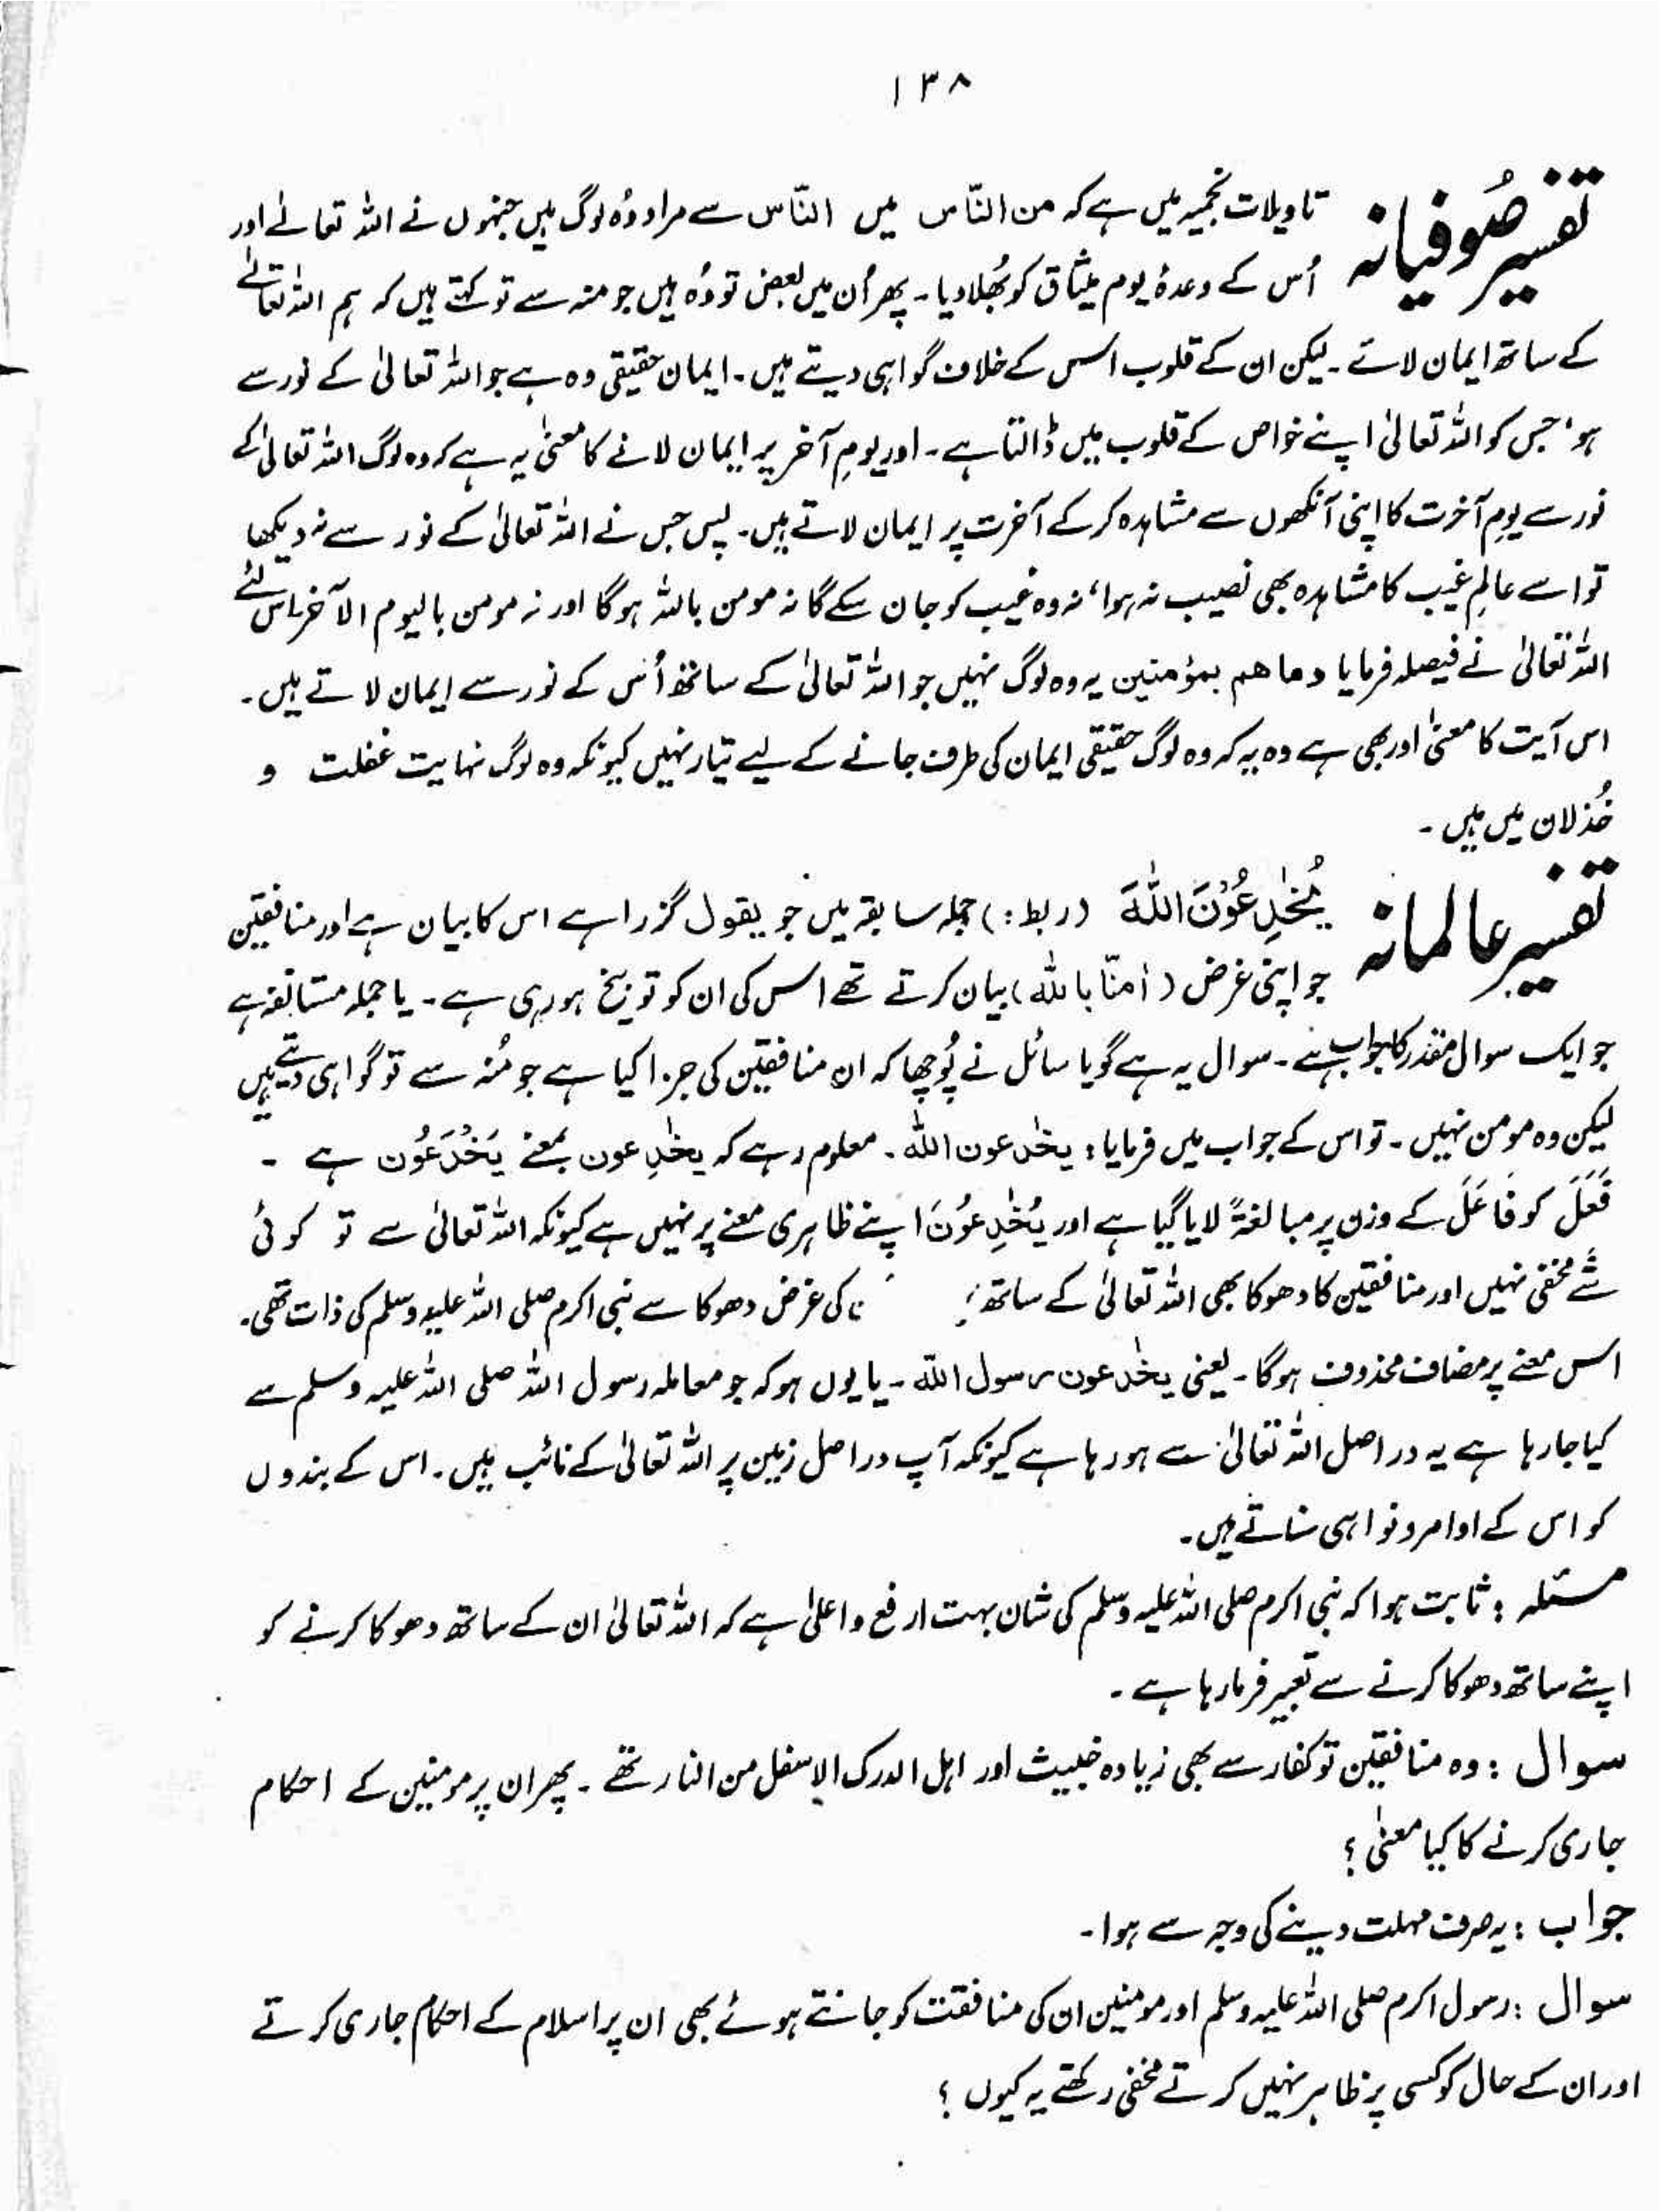 ۱۳۸
تفسیر صُوفیانہ تاویلات نجمیہ میں ہے کہ من النّاس میں النّاس سے مراد وُہ لوگ ہیں جنہوں نے اللہ تعالےٰ اور
اُس کے وعدۂ یوم میثاق کو بُھلا دیا۔ پھر اُن میں بعض تو وُہ ہیں جو منہ سے تو کہتے ہیں کہ ہم اللہ تعالےٰ
کے ساتھ ایمان لائے۔ لیکن ان کے قلوب اسس کے خلاف گواہی دیتے ہیں۔ ایمان حقیقی وہ ہے جو اللہ تعالیٰ کے نور سے
ہو، جس کو اللہ تعالیٰ اپنے خواص کے قلوب میں ڈالتا ہے۔ اور یومِ آخر پر ایمان لانے کا معنیٰ یہ ہے کہ وہ لوگ اللہ تعالیٰ کے
نور سے یومِ آخرت کا اپنی آنکھوں سے مشاہدہ کر کے آخرت پر ایمان لاتے ہیں۔ پس جس نے اللہ تعالیٰ کے نور سے نہ دیکھا
تو اسے عالمِ غیب کا مشاہدہ بھی نصیب نہ ہوا، نہ وہ غیب کو جان سکے گا نہ مومن باللہ ہو گا اور نہ مومن بالیوم الآخر اس لئے
اللہ تعالیٰ نے فیصلہ فرمایا وما ھم بمؤمنین یہ وہ لوگ نہیں جو اللہ تعالیٰ کے ساتھ اُس کے نور سے ایمان لاتے ہیں۔
اس آیت کا معنیٰ اور بھی ہے وہ یہ کہ وہ لوگ حقیقی ایمان کی طرف جانے کے لیے تیار نہیں کیونکہ وہ لوگ نہایت غفلت و
خُذلان میں ہیں۔
تفسیر عالمانہ یُخٰدِعُوْنَ اللّٰہَ (ربط:) جملہ سابقہ میں جو یقول گزرا ہے اس کا بیان ہے اور منافقین
جو اپنی غرض (اٰمنّا باللّٰہ) بیان کرتے تھے اسس کی ان کو توبیخ ہو رہی ہے۔ یا جملہ مستانفہ ہے
جو ایک سوال مقدر کا جواب ہے۔ سوال یہ ہے گویا سائل نے پُوچھا کہ ان منافقین کی جزا کیا ہے جو مُنہ سے تو گواہی دیتے ہیں
لیکن وہ مومن نہیں۔ تو اس کے جواب میں فرمایا: یخٰدعون اللّٰہ۔ معلوم رہے کہ یخٰدِعون بمعنے یَخْدَعُون ہے۔
فَعَلَ کو فَاعَلَ کے وزن پر مبالغۃً لایا گیا ہے اور یُخٰدِعُوْنَ اپنے ظاہری معنے پر نہیں ہے کیونکہ اللہ تعالیٰ سے تو کوئی
شے مخفی نہیں اور منافقین کا دھوکا بھی اللہ تعالیٰ کے ساتھ کی غرض دھوکا سے نبی اکرم صلی اللہ علیہ وسلم کی ذات تھی۔
اسس معنے پر مضاف محذوف ہو گا۔ یعنی یخٰدعون رسول اللّٰہ۔ یا یوں ہو کہ جو معاملہ رسول اللہ صلی اللہ علیہ وسلم سے
کیا جا رہا ہے یہ دراصل اللہ تعالیٰ سے ہو رہا ہے کیونکہ آپ دراصل زمین پر اللہ تعالیٰ کے نائب ہیں۔ اس کے بندوں
کو اس کے اوامر و نواہی سناتے ہیں۔
مسئلہ: ثابت ہوا کہ نبی اکرم صلی اللہ علیہ وسلم کی شان بہت ارفع و اعلیٰ ہے کہ اللہ تعالیٰ ان کے ساتھ دھوکا کرنے کو
اپنے ساتھ دھوکا کرنے سے تعبیر فرما رہا ہے۔
سوال: وہ منافقین تو کفار سے بھی زیادہ خبیث اور اہل الدرک الاسفل من النار تھے۔ پھر ان پر مومنین کے احکام
جاری کرنے کا کیا معنیٰ؟
جواب: یہ صرف مہلت دینے کی وجہ سے ہوا۔
سوال: رسول اکرم صلی اللہ علیہ وسلم اور مومنین ان کی منافقت کو جانتے ہوئے بھی ان پر اسلام کے احکام جاری کرتے
اور ان کے حال کو کسی پر ظاہر نہیں کرتے مخفی رکھتے یہ کیوں؟